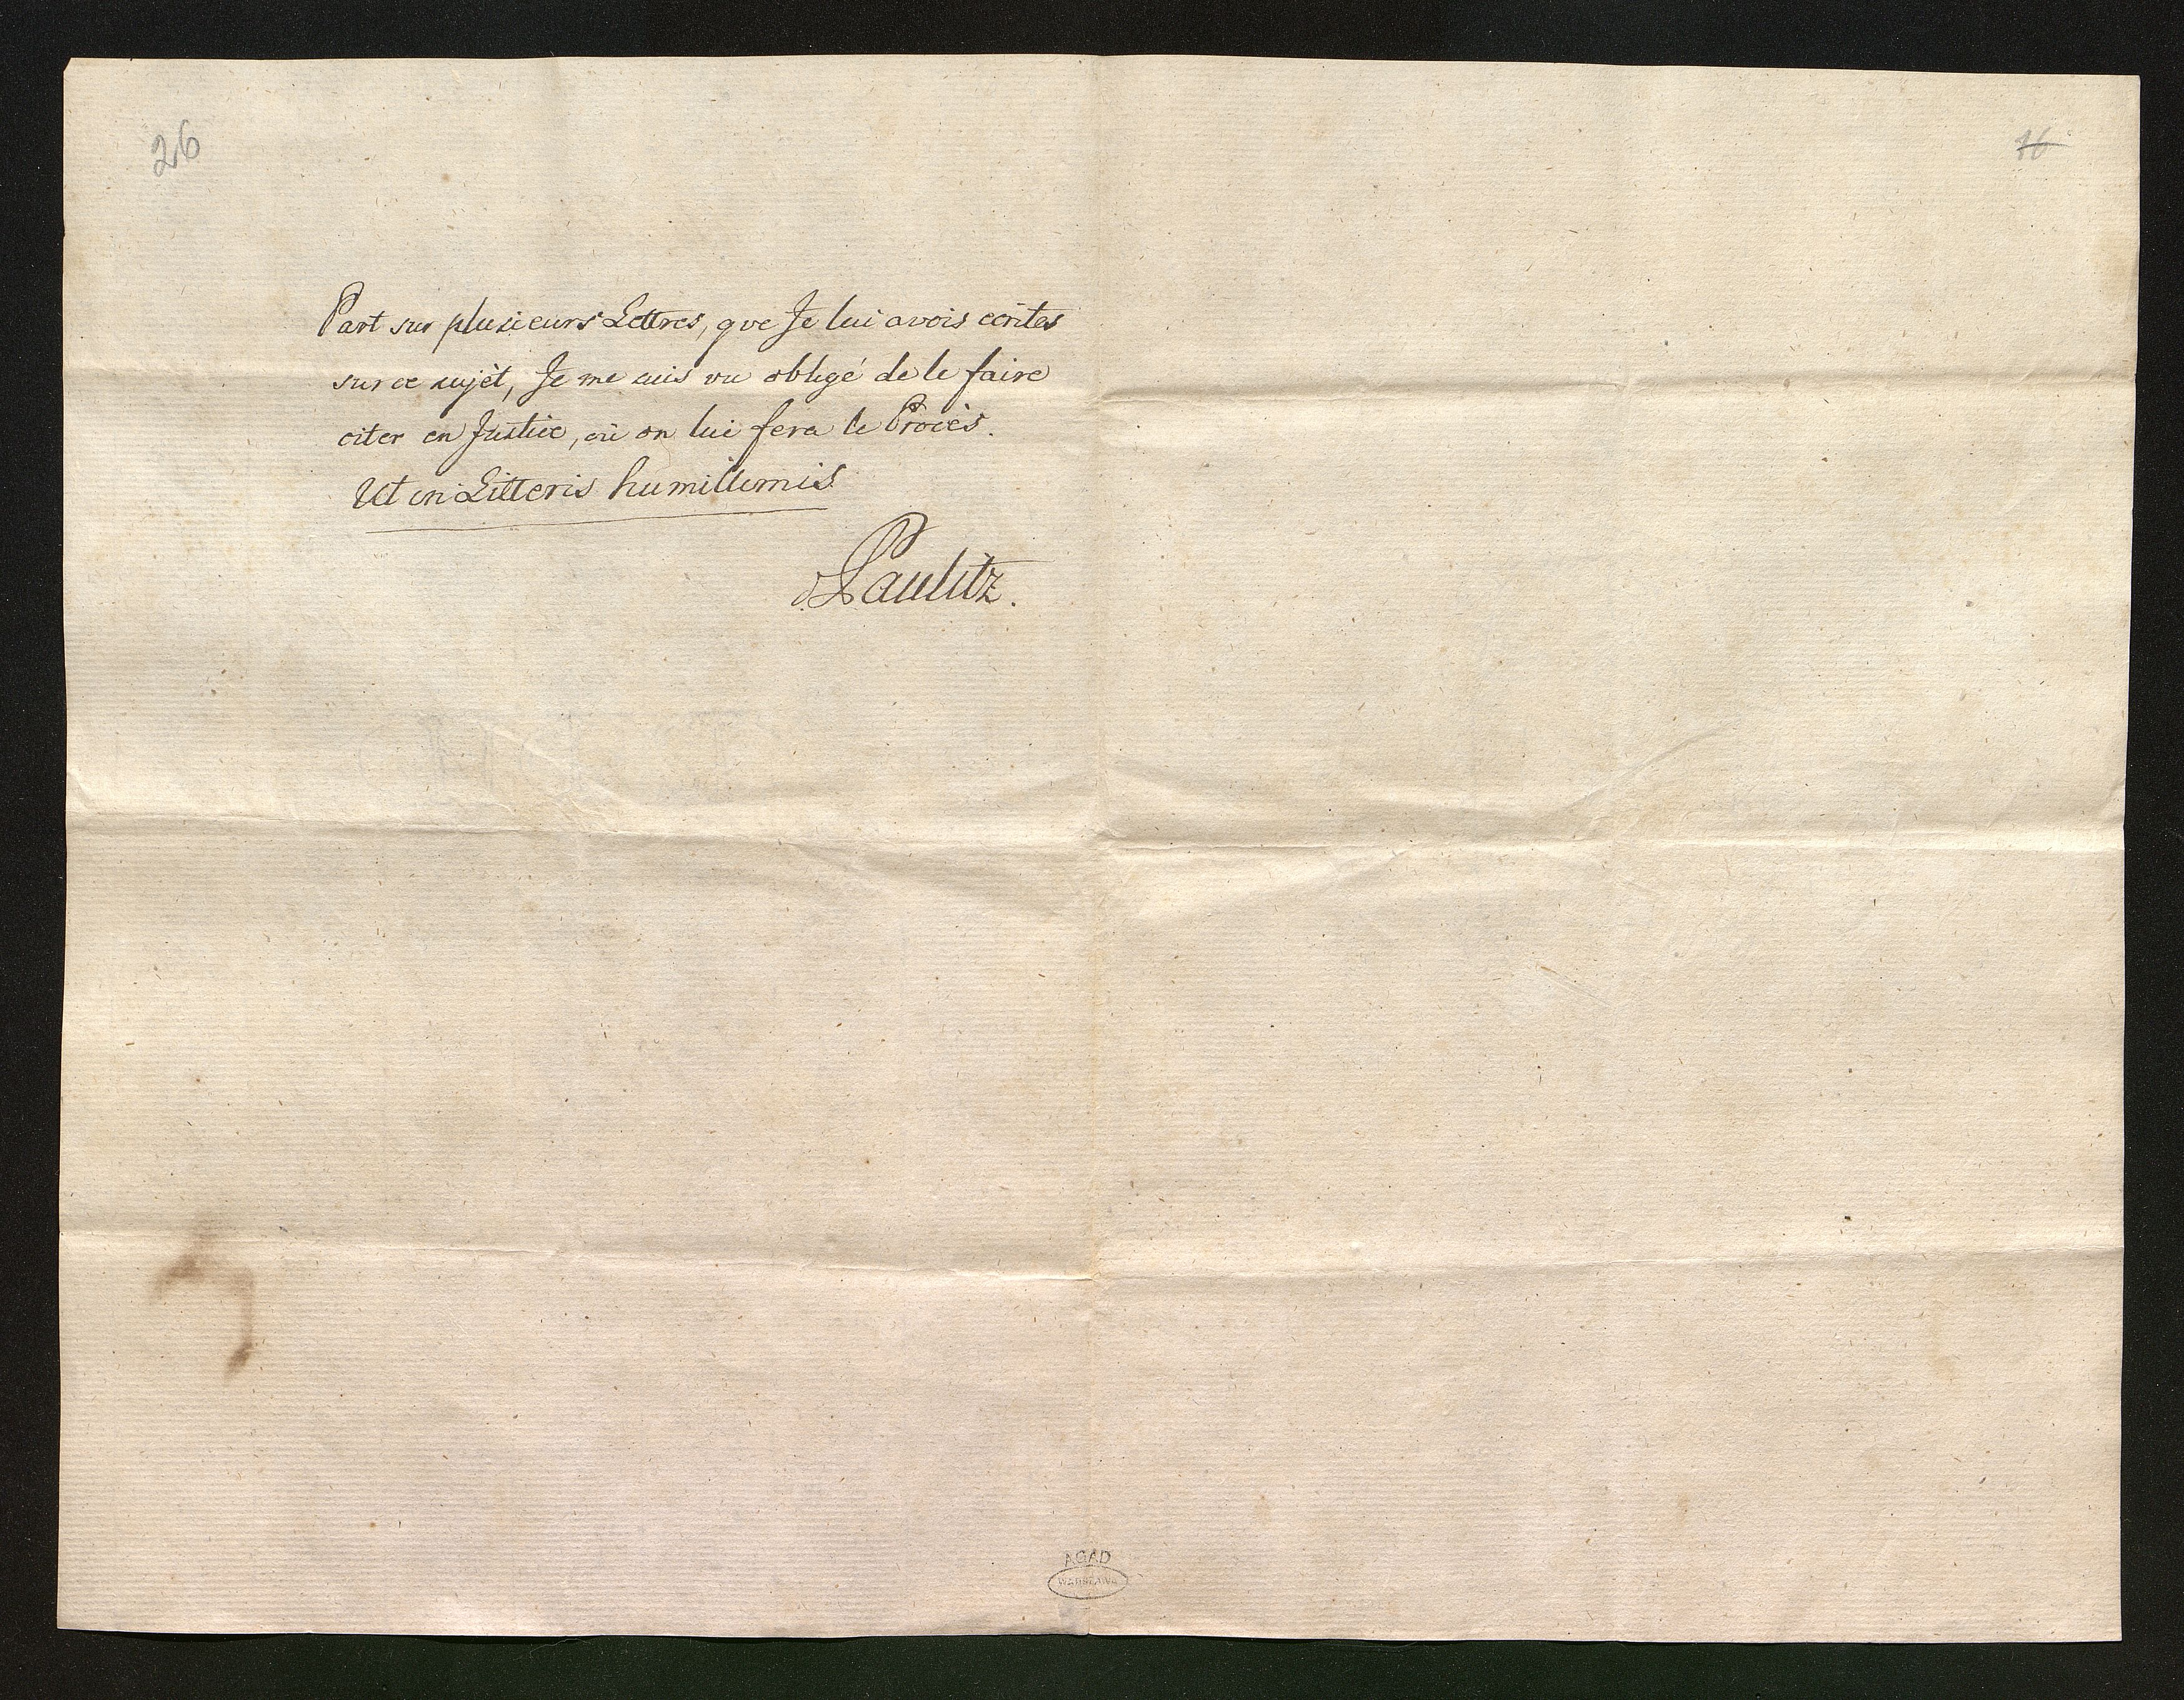 26
16
Part sur plusieurs Lettres, que Je lui avois ecrites
sur ce sujèt, Je me suis vu obligé de le faire
citer en Justice, où on lui fera le Procès.
Ut in Litteris humillimis
Paulitz.
AGAD
WARSZAWA